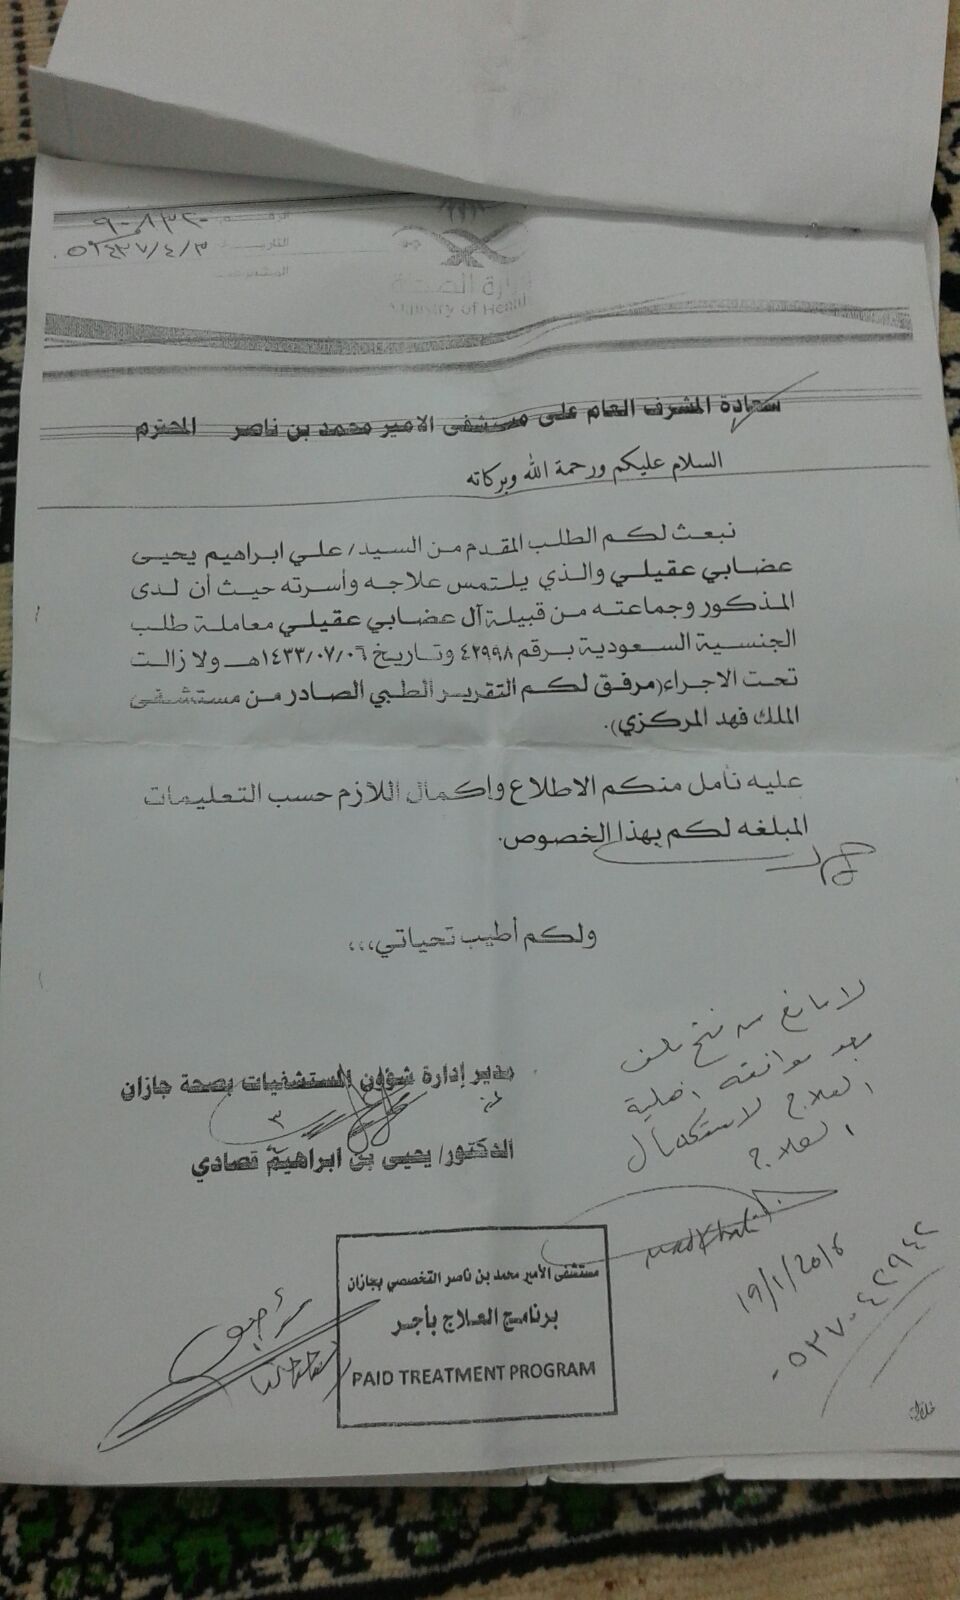 الرقم
التاريخ ١٤٣٧/٤/٣
وزارة الصحة
Ministry of Health
سعادة المشرف العام على مستشفى الامير محمد بن ناصر المحترم
السلام عليكم ورحمة الله وبركاته
نبعث لكم الطلب المقدم من السيد/ علي ابراهيم يحيى
عضابي عقيلي والذي يلتمس علاجه وأسرته حيث أن لدى
المذكور وجماعته من قبيلة آل عضابي عقيلي معاملة طلب
الجنسية السعودية برقم ٤٢٩٩٨ وتاريخ ١٤٣٣/٠٧/٠٦هـ ولا زالت
تحت الاجراء(مرفق لكم التقرير الطبي الصادر من مستشفى
الملك فهد المركزي).
عليه نأمل منكم الاطلاع وإكمال اللازم حسب التعليمات
المبلغه لكم بهذا الخصوص.
ولكم أطيب تحياتي،،،
لا مانع من فتح ملف
بعد موافقة اهلية
العلاج لاستكمال
العلاج
مدير إدارة شؤون المستشفيات بصحة جازان
الدكتور/ يحيى بن ابراهيم قصادي
19/1/2016
مستشفى الأمير محمد بن ناصر التخصصي بجازان
برنامج العلاج بأجر
PAID TREATMENT PROGRAM